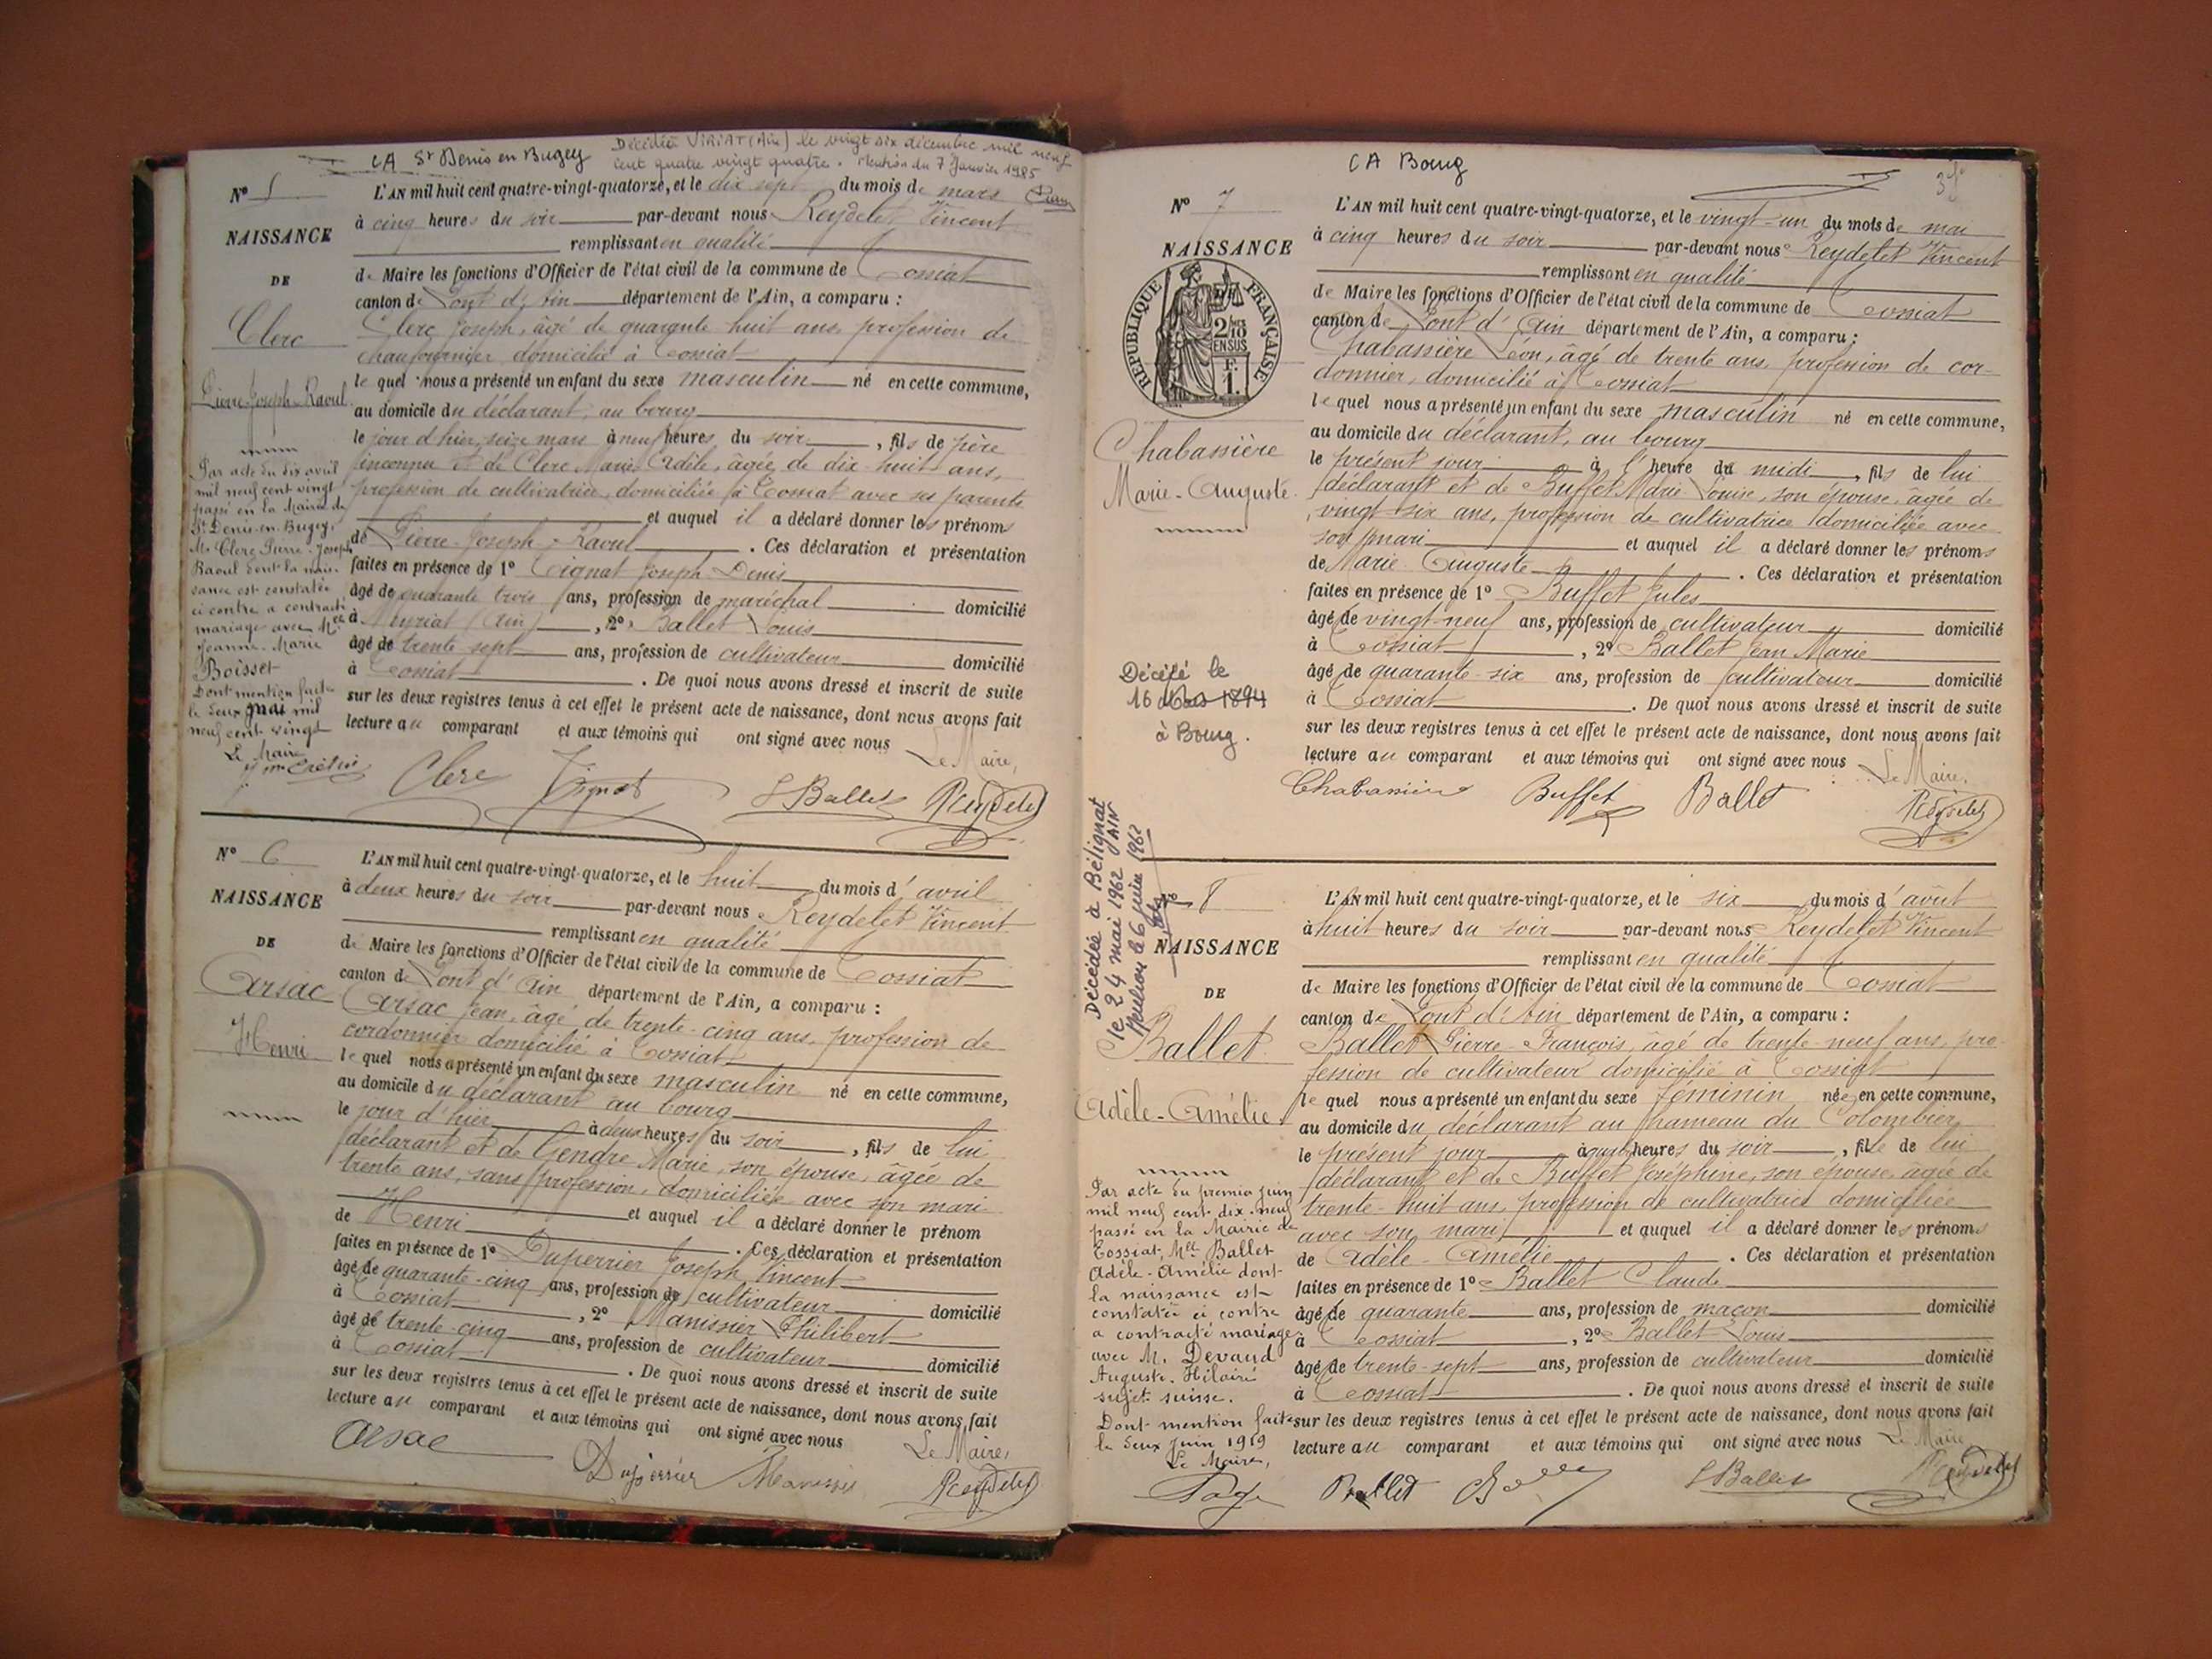 CA St Denis en Bugey
Décédé à VIRIAT (Ain) le vingt six décembre mil neuf
cent quatre vingt quatre. Mention du 7 Janvier 1985
N° 5
NAISSANCE
DE
Clerc
Pierre-Joseph-Raoul
L'AN mil huit cent quatre-vingt-quatorze, et le dix sept du mois de mars
à cinq heures du soir par-devant nous Reydelet Vincent
remplissant en qualité
de Maire les fonctions d'Officier de l'état civil de la commune de Cossiat
canton de Pont d'Ain département de l'Ain, a comparu :
Clerc Joseph, âgé de quarante huit ans, profession de
chaufournier domicilié à Cossiat
le quel nous a présenté un enfant du sexe masculin né en cette commune,
au domicile du déclarant, au bourg
le jour d'hier, seize mars à neuf heures du soir, fils de père
inconnu et de Clerc Marie Adèle, âgée de dix-huit ans,
profession de cultivatrice, domiciliée à Cossiat avec ses parents
et auquel il a déclaré donner les prénoms
de Pierre-Joseph-Raoul. Ces déclaration et présentation
faites en présence de 1° Tignat Joseph-Denis
âgé de quarante trois ans, profession de maréchal domicilié
à Meyriat (Ain), 2° Ballet Louis
âgé de trente sept ans, profession de cultivateur domicilié
à Cossiat. De quoi nous avons dressé et inscrit de suite
sur les deux registres tenus à cet effet le présent acte de naissance, dont nous avons fait
lecture au comparant et aux témoins qui ont signé avec nous
Le Maire,
Clerc Tignat L Ballet Reydelet
Par acte du dix avril
mil neuf cent vingt
passé en la Mairie de
St Denis-en-Bugey,
Mr Clerc Pierre-Joseph
Raoul dont la nais-
sance est constatée
ci contre a contracté
mariage avec Melle
Jeanne-Marie
Boisset
Dont mention faite
le deux mai mil
neuf cent vingt
Le Maire
N° 6
NAISSANCE
DE
Arsac
Henri
L'AN mil huit cent quatre-vingt-quatorze, et le huit du mois d'avril
à deux heures du soir par-devant nous Reydelet Vincent
remplissant en qualité
de Maire les fonctions d'Officier de l'état civil de la commune de Cossiat
canton de Pont d'Ain département de l'Ain, a comparu :
Arsac Jean, âgé de trente-cinq ans, profession de
cordonnier domicilié à Cossiat
le quel nous a présenté un enfant du sexe masculin né en cette commune,
au domicile du déclarant au bourg
le jour d'hier à deux heures du soir, fils de lui
déclarant et de Gendre Marie, son épouse, âgée de
trente ans, sans profession, domiciliée avec son mari
et auquel il a déclaré donner le prénom
de Henri. Ces déclaration et présentation
faites en présence de 1° Duperrier Joseph Vincent
âgé de quarante-cinq ans, profession de cultivateur domicilié
à Cossiat, 2° Manissier Philibert
âgé de trente-cinq ans, profession de cultivateur domicilié
à Cossiat. De quoi nous avons dressé et inscrit de suite
sur les deux registres tenus à cet effet le présent acte de naissance, dont nous avons fait
lecture au comparant et aux témoins qui ont signé avec nous
Le Maire,
Arsac Duperrier Manissier Reydelet
CA Bourg
N° 7
NAISSANCE
RÉPUBLIQUE FRANÇAISE
2/10
EN SUS
F.
1.
Chabassière
Marie-Auguste
L'AN mil huit cent quatre-vingt-quatorze, et le vingt-un du mois de mai
à cinq heures du soir par-devant nous Reydelet Vincent
remplissant en qualité
de Maire les fonctions d'Officier de l'état civil de la commune de Cossiat
canton de Pont d'Ain département de l'Ain, a comparu :
Chabassière Léon, âgé de trente ans, profession de cor-
donnier, domicilié à Cossiat
le quel nous a présenté un enfant du sexe masculin né en cette commune,
au domicile du déclarant, au bourg
le présent jour à l'heure de midi, fils de lui
déclarant et de Buffet Marie Louise, son épouse, âgée de
vingt-six ans, profession de cultivatrice domiciliée avec
son mari et auquel il a déclaré donner les prénoms
de Marie-Auguste. Ces déclaration et présentation
faites en présence de 1° Buffet Jules
âgé de vingt-neuf ans, profession de cultivateur domicilié
à Cossiat, 2° Ballet Jean Marie
âgé de quarante-six ans, profession de cultivateur domicilié
à Cossiat. De quoi nous avons dressé et inscrit de suite
sur les deux registres tenus à cet effet le présent acte de naissance, dont nous avons fait
lecture au comparant et aux témoins qui ont signé avec nous
Le Maire,
Chabassière Buffet Ballet Reydelet
Décédé le
16 1894
à Bourg.
Décédée à Bélignat
le 24 mai 1962 AIN
Mention le 6 juin 1962
N° 8
NAISSANCE
DE
Ballet
Adèle-Amélie
L'AN mil huit cent quatre-vingt-quatorze, et le six du mois d'août
à huit heures du soir par-devant nous Reydelet Vincent
remplissant en qualité
de Maire les fonctions d'Officier de l'état civil de la commune de Cossiat
canton de Pont d'Ain département de l'Ain, a comparu :
Ballet Pierre-François, âgé de trente-neuf ans, pro-
fession de cultivateur domicilié à Cossiat
le quel nous a présenté un enfant du sexe féminin née en cette commune,
au domicile du déclarant au hameau du Colombier
le présent jour à heures du soir, fille de lui
déclarant et de Buffet Joséphine, son épouse, âgée de
trente-huit ans, profession de cultivatrice domiciliée
avec son mari et auquel il a déclaré donner les prénoms
de Adèle-Amélie. Ces déclaration et présentation
faites en présence de 1° Ballet Claude
âgé de quarante ans, profession de maçon domicilié
à Cossiat, 2° Ballet Louis
âgé de trente-sept ans, profession de cultivateur domicilié
à Cossiat. De quoi nous avons dressé et inscrit de suite
sur les deux registres tenus à cet effet le présent acte de naissance, dont nous avons fait
lecture au comparant et aux témoins qui ont signé avec nous
Le Maire
Ballet L Ballet Reydelet
Par acte du premier juin
mil neuf cent dix-neuf
passé en la Mairie de
Cossiat, Melle Ballet
Adèle-Amélie dont
la naissance est
constatée ci contre
a contracté mariage
avec M. Devaud
Auguste-Hilaire
sujet suisse.
Dont mention faite
le deux Juin 1919
Le Maire,